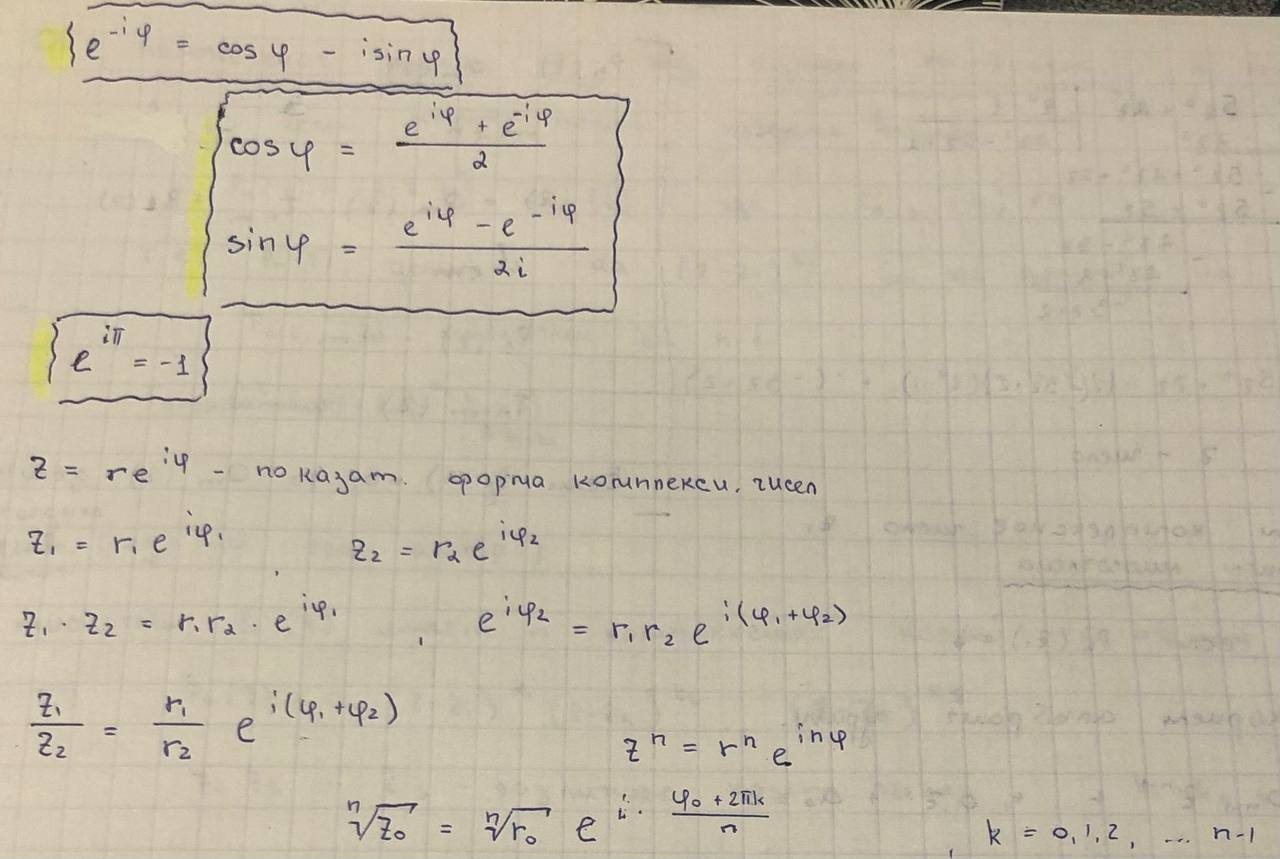 e^{-iφ} = cos φ - i sin φ
cos φ = \frac{e^{iφ} + e^{-iφ}}{2}
sin φ = \frac{e^{iφ} - e^{-iφ}}{2i}
e^{iπ} = -1
z = re^{iφ} - показат. форма комплексн. чисел
z₁ = r₁ e^{iφ₁} z₂ = r₂ e^{iφ₂}
z₁ · z₂ = r₁ r₂ · e^{iφ₁} , e^{iφ₂} = r₁ r₂ e^{i(φ₁+φ₂)}
\frac{z₁}{z₂} = \frac{r₁}{r₂} e^{i(φ₁+φ₂)}
zⁿ = rⁿ e^{inφ}
\sqrt[n]{z₀} = \sqrt[n]{r₀} e^{i · \frac{φ₀ + 2πk}{n}} , k = 0, 1, 2, ... n-1